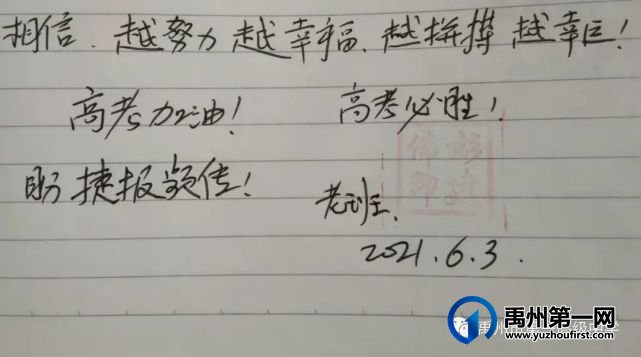 相信、越努力越幸福、越拼搏越幸运！
高考加油！ 高考必胜！
盼捷报频传！
老班
2021.6.3.
禹州第一网
www.yuzhoufirst.com